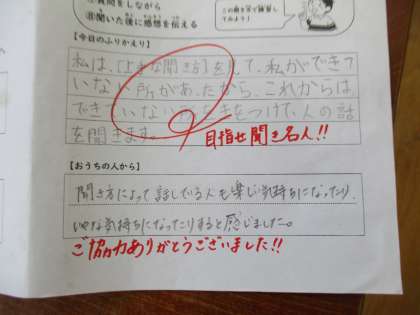 質問をしながら
⑪聞いた後に感想を伝える
この通りで練習し
てみよう!
【今日のふりかえり】
私は、「よまな聞き方」を見て、私ができて
いない所があったから、これからは
できていない所をきをつけて、人の話
を聞きます。
目指せ聞き名人!!
【おうちの人から】
聞き方によって話している人も楽しい気持ちになったり、
いやな気持ちになったりすると感じました。
ご協力ありがとうございました!!